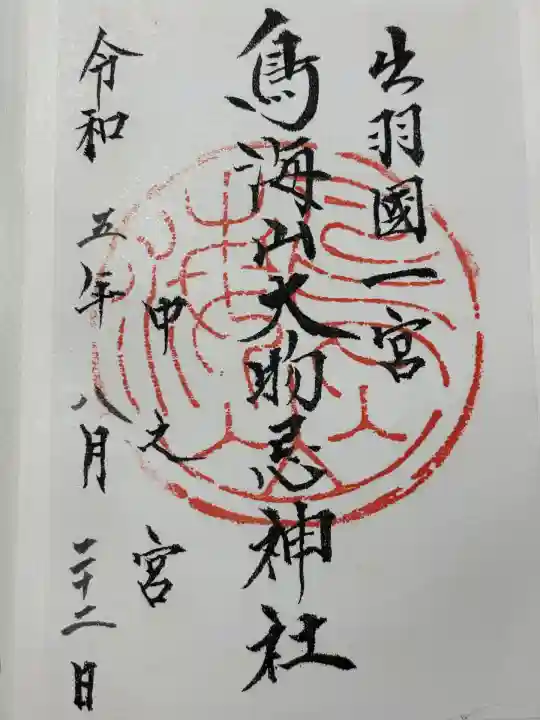 出羽國一宮
鳥海山大物忌神社
中之宮
令和五年八月二十二日